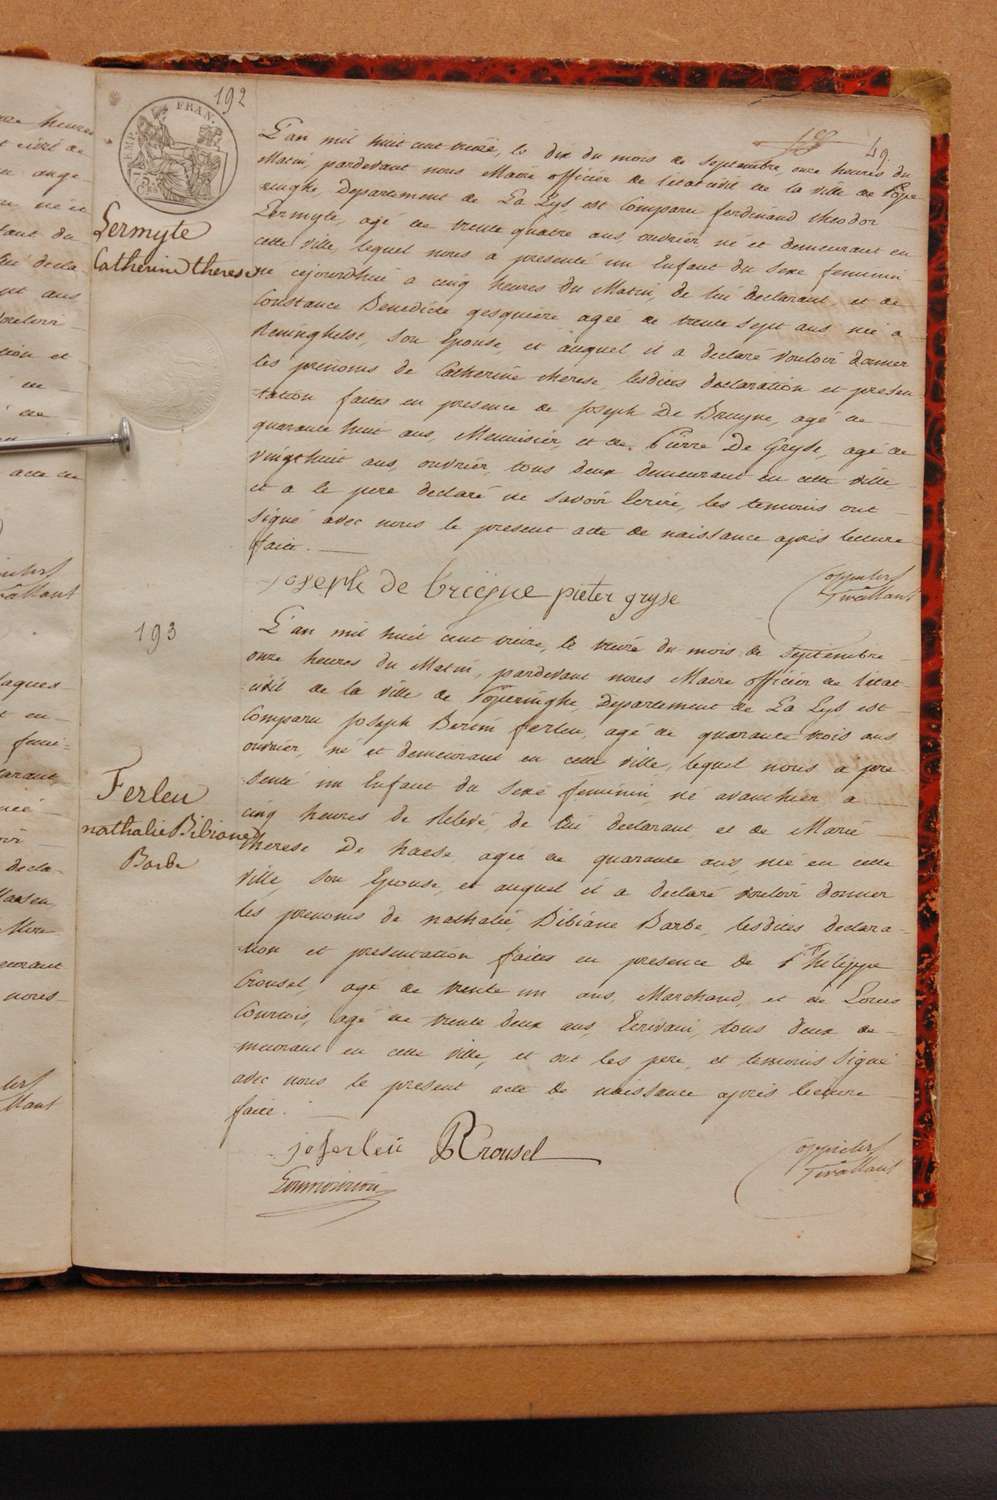 192
49
TIMB. EMP. FRAN.
Lermyte
Catherine therese
L'an mil huit cent treize, le dix du mois de Septembre onze heures du
Matin, pardevant nous Maire officier de l'état civil de la ville de Pope
ringhe, Departement de La Lys, est Comparu ferdinand theodor
Lermyte, agé de trente quatre ans, ouvrier né et demeurant en
cette ville, lequel nous a presenté un Enfant du sexe feminin
né cejourdhui à cinq heures du Matin, de lui declarant et de
Constance Benedicte gesquiere agée de trente sept ans née a
Reninghelst, son Epouse, et auquel il a declaré vouloir donner
les prénoms de Catherine therese, lesdites declaration et presen
tation faites en presence de Joseph De Bruyne, agé de
quarante huit ans, Menuisier, et de Pierre De Gryse, agé de
vingthuit ans, ouvrier, tous deux demeurant en cette ville,
et a le pere declaré ne savoir Ecrire, les temoins ont
signé avec nous le present acte de naissance après lecture
faite.
joseph de briegne pieter gryse
193
Ferleu
nathalie Bibiane
Barbe
L'an mil huit cent treize, le treize du mois de Septembre
onze heures du Matin, pardevant nous Maire officier de l'état
civil de la ville de Poperinghe, Departement de La Lys est
Comparu Joseph Bertin ferleu, agé de quarante trois ans
ouvrier, né et demeurant en cette ville, lequel nous a pre
senté un Enfant du sexe feminin, né avanthier a
cinq heures de relevé, de lui declarant et de Marie
therese De haese, agée de quarante ans, née en cette
ville, son Epouse, et auquel il a declaré vouloir donner
les prenoms de nathalie Bibiane Barbe, lesdites declara-
tion et presentation faites en presence de Philippe
Crousel, agé de trente un ans, Marchand, et de Louis
Cournois, agé de trente deux ans, Ecrivain, tous deux de-
meurant en cette ville, et ont les pere, et temoins signé
avec nous le present acte de naissance après lecture
faite.
jo ferleu PCrousel